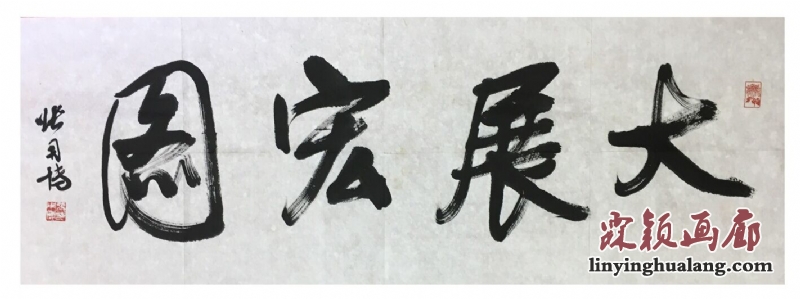 大展宏图
霖颖画廊
linyinghualang.com